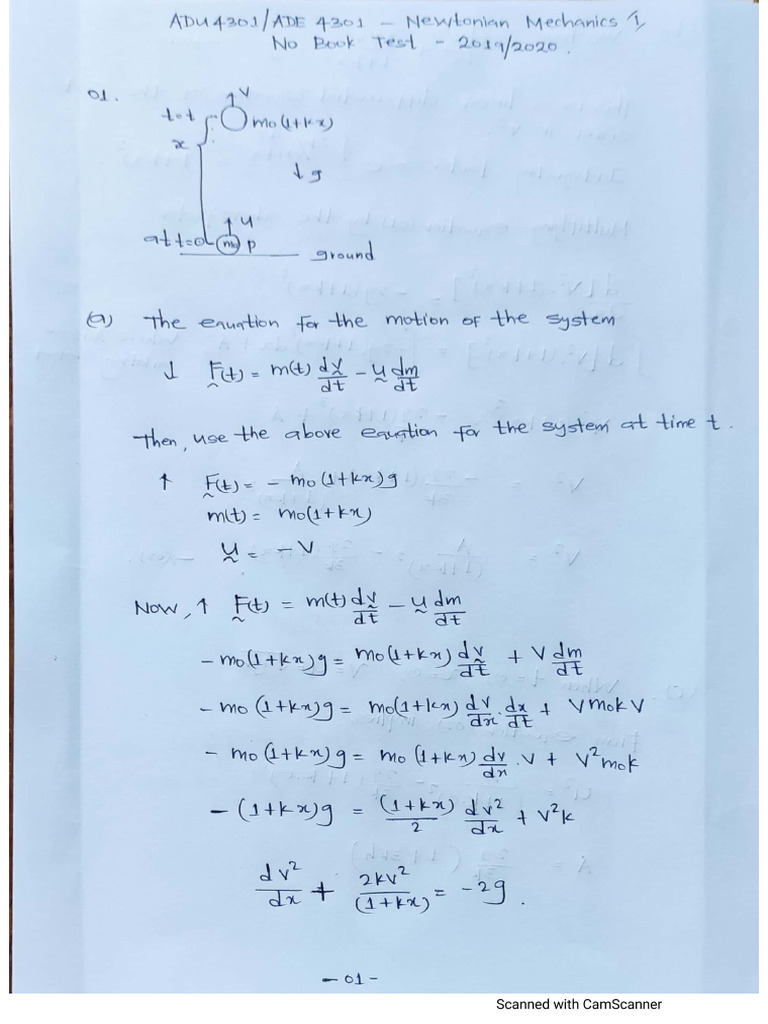 ADU4301/ADE 4301 – Newtonian Mechanics I
No Book Test – 2019/2020.
01.
t=t
x
V
m0(1+kx)
↓ g
at t=0
↑ u
m0
P
ground
(a) The equation for the motion of the system
↓ F(t) = m(t) dv/dt – u dm/dt
Then, use the above equation for the system at time t.
↑ F(t) = – m0(1+kx)g
m(t) = m0(1+kx)
u = – V
Now, ↑ F(t) = m(t) dv/dt – u dm/dt
– m0(1+kx)g = m0(1+kx) dv/dt + V dm/dt
– m0(1+kx)g = m0(1+kx) dv/dx . dx/dt + V m0 k V
– m0(1+kx)g = m0(1+kx) dv/dx . V + V² m0k
– (1+kx)g = (1+kx)/2 dv²/dx + V²k
dv²/dx + 2kv²/(1+kx) = –2g.
– 01 –
Scanned with CamScanner